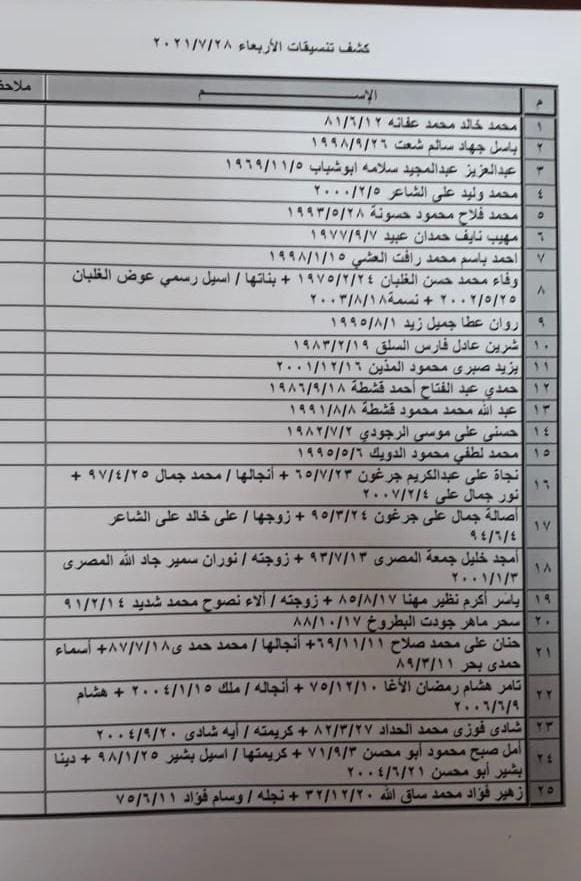 كشف تنسيقات الأربعاء ٢٠٢١/٧/٢٨
م الإســـم ملاحظ
١ محمد خالد محمد عفانه ٨١/٦/١٢
٢ باسل جهاد سالم شعت ١٩٩٨/٩/٢٦
٣ عبدالعزيز عبدالمجيد سلامه ابوشباب ١٩٦٩/١١/٥
٤ محمد وليد على الشاعر ٢٠٠٠/٢/٥
٥ محمد فلاح محمود حسونة ١٩٩٣/٥/٢٨
٦ مهيب نايف حمدان عبيد ١٩٧٧/٩/٧
٧ احمد باسم محمد رافت العشي ١٩٩٨/١/١٥
٨ وفاء محمد حسن الغلبان ١٩٧٥/٢/٢٤ + بناتها / اسيل رسمي عوض الغلبان
٢٠٠٢/٥/٢٥ + نسمة٢٠٠٣/٨/١٨
٩ روان عطا جميل زيد ١٩٩٥/٨/١
١٠ شرين عادل فارس السلق ١٩٨٣/٢/١٩
١١ يزيد صبرى محمود المذين ٢٠٠١/١٢/١٦
١٢ حمدي عبد الفتاح أحمد قشطة ١٩٨٦/٩/١٨
١٣ عبد الله محمد محمود قشطة ١٩٩١/٨/٨
١٤ حسنى على موسى الرجودي ١٩٨٢/٧/٢
١٥ محمد لطفي محمود الدويك ١٩٩٥/٥/٦
١٦ نجاة على عبدالكريم جرغون ٦٥/٧/٢٣ + أنجالها / محمد جمال ٩٧/٤/٢٥ +
نور جمال على ٢٠٠٧/٢/٤
١٧ أصالة جمال على جرغون ٩٥/٣/٢٤ + زوجها / على خالد على الشاعر
٩٤/٦/٤
١٨ أمجد خليل جمعة المصرى ٩٣/٧/١٣ + زوجته / نوران سمير جاد الله المصرى
٢٠٠١/١/٣
١٩ ياسر أكرم نظير مهنا ٨٥/٨/١٧ + زوجته / ألاء نصوح محمد شديد ٩١/٢/١٤
٢٠ سحر ماهر جودت البطروخ ٨٨/١٠/١٧
٢١ حنان على محمد صلاح ٦٩/١١/١١+ أنجالها / محمد حمد ى٨٧/٧/١٨+ أسماء
حمدى بحر ٨٩/٣/١١
٢٢ تامر هشام رمضان الأغا ٧٥/١٢/١٠ + أنجاله / ملك ٢٠٠٤/١/١٥ + هشام
٢٠٠٦/٦/٩
٢٣ شادى فوزى محمد الحداد ٨٢/٣/٢٧ + كريمته / أيه شادى ٢٠٠٤/٩/٢٠
٢٤ أمل صبح محمود أبو محسن ٧١/٩/٣ + كريمتها / اسيل بشير ٩٨/١/٢٥ + دينا
بشير أبو محسن ٢٠٠٤/٦/٢١
٢٥ زهير فؤاد محمد ساق الله ٣٢/١٢/٢٠ + نجله / وسام فؤاد ٧٥/٦/١١